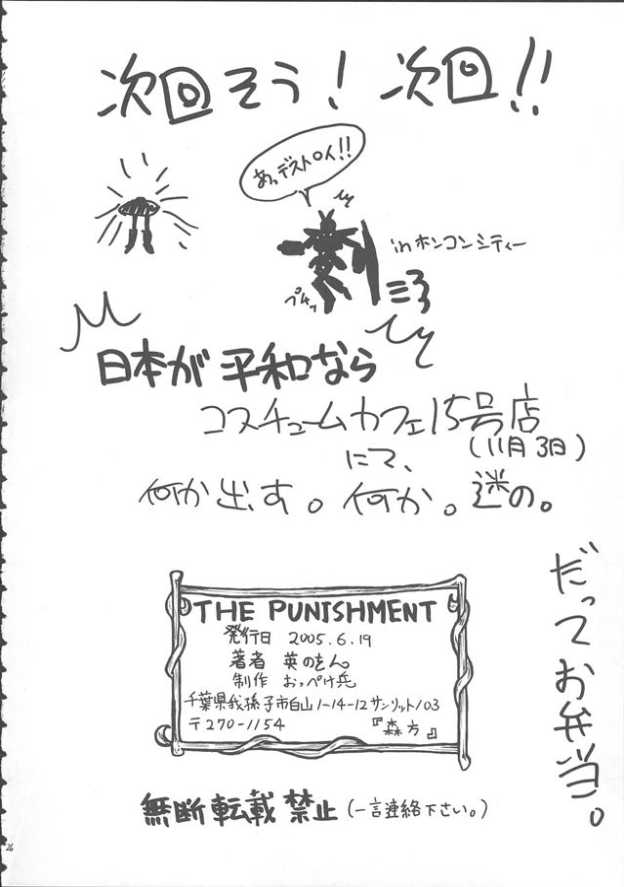 次回そう! 次回!!
あっデストロイ!!
inホンコンシティー
プチッ
日本が平和なら
コスチュームカフェ15号店
(11月3日)
にて、
何か出す。何か。謎の。
だってお弁当。
THE PUNISHMENT
発行日 2005.6.19
著者 英のもん。
制作 おっぺけ兵
千葉県我孫子市白山1-14-12サンリット103
〒270-1154 『森方』
無断転載禁止(一言連絡下さい。)
26